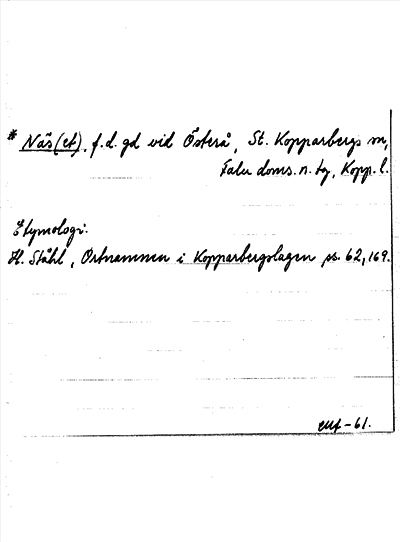 * Näs(et), f.d. gd vid Österå, St. Kopparbergs sn,
Falu doms. n. tg, Kopp. l.
Etymologi:
H. Ståhl, Ortnamnen i Kopparbergslagen ss. 62, 169.
-61.